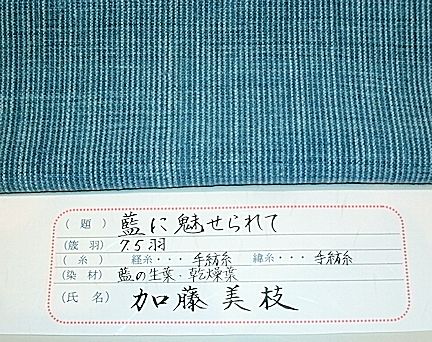 （題）藍に魅せられて
（筬羽）7.5羽
（糸）経糸・・・手紡糸 緯糸・・・手紡糸
（染材）藍の生葉・乾燥葉
（氏名）加藤美枝